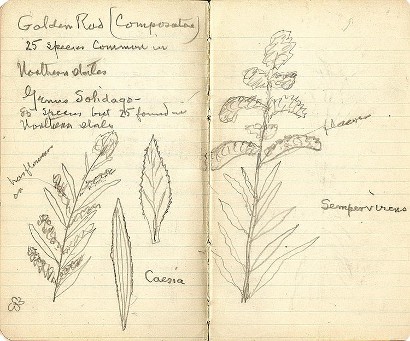 Golden Rod (Compositae)
25 species common in
Northern states
Genus Solidago -
85 species but 25 found in
Northern states
has flowers
on
Caesia
flowers
Sempervirens